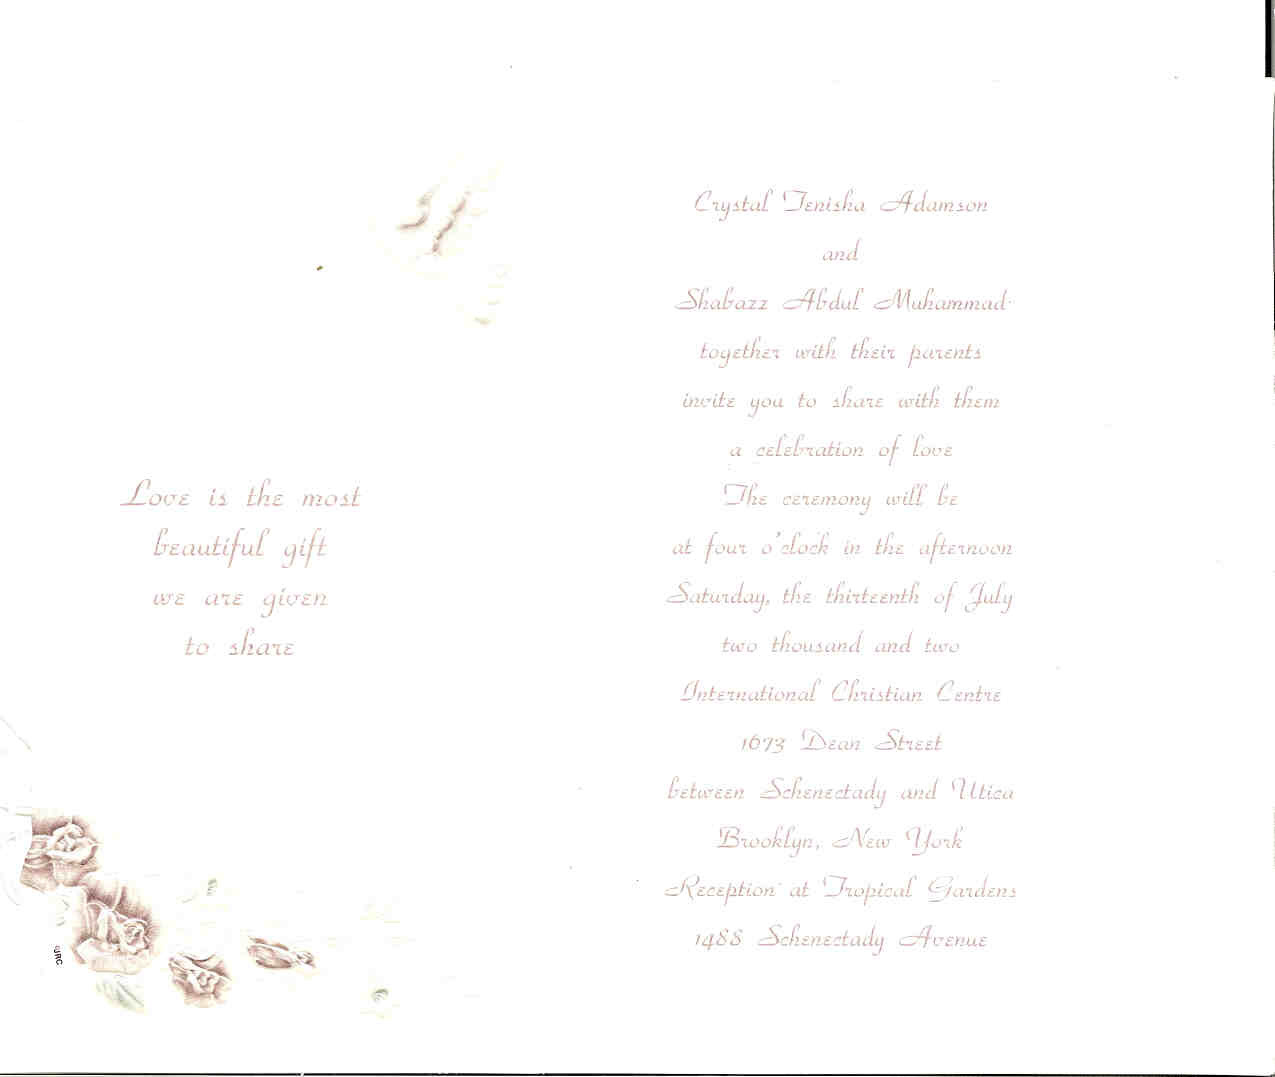 Love is the most
beautiful gift
we are given
to share
©JRC
Crystal Tenisha Adamson
and
Shabazz Abdul Muhammad
together with their parents
invite you to share with them
a celebration of love
The ceremony will be
at four o'clock in the afternoon
Saturday, the thirteenth of July
two thousand and two
International Christian Centre
1673 Dean Street
between Schenectady and Utica
Brooklyn, New York
Reception at Tropical Gardens
1488 Schenectady Avenue